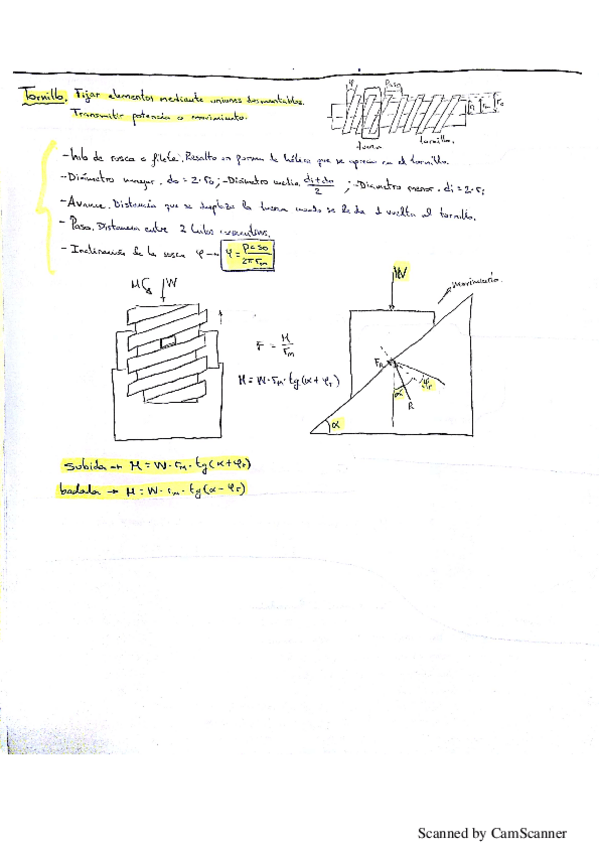 Tornillo. Fijar elementos mediante uniones desmontables.
Transmitir potencia o movimiento.
φ
paso
tuerca
tornillo
- Hilo de rosca o filete. Resalto en forma de hélice que se aprecia en el tornillo.
- Diámetro mayor. do = 2·ro ; - Diámetro medio. di+do/2 ; - Diámetro menor. di = 2·ri
- Avance. Distancia que se desplaza la tuerca cuando se le da 1 vuelta al tornillo.
- Paso. Distancia entre 2 hilos consecutivos.
- Inclinación de la rosca φ → φ = paso/2π rm
M W
F = M/rm
M = W·rm·tg(α+φr)
W
movimiento
FR
φr
α
R
α
Subida → M = W·rm·tg(α+φr)
bajada → M = W·rm·tg(α-φr)
Scanned by CamScanner